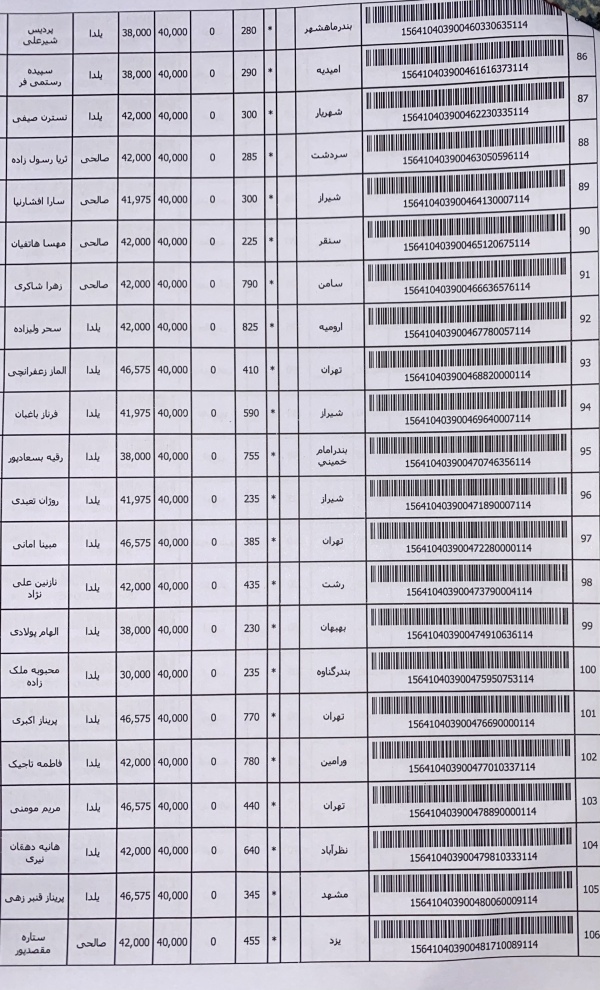 بندرماهشهر * 280 0 40,000 38,000 یلدا پردیس شیرعلی
156410403900460330635114
86 امیدیه * 290 0 40,000 38,000 یلدا سپیده رستمی فر
156410403900461616373114
87 شهریار * 300 0 40,000 42,000 یلدا نسترن صیفی
156410403900462230335114
88 سردشت * 285 0 40,000 42,000 صالحی ثریا رسول زاده
156410403900463050596114
89 شیراز * 300 0 40,000 41,975 صالحی سارا افشارنیا
156410403900464130007114
90 سنقر * 225 0 40,000 42,000 صالحی مهسا هاتفیان
156410403900465120675114
91 سامن * 790 0 40,000 42,000 صالحی زهرا شاکری
156410403900466636576114
92 ارومیه * 825 0 40,000 42,000 یلدا سحر ولیزاده
156410403900467780057114
93 تهران * 410 0 40,000 46,575 یلدا الماز زعفرانچی
156410403900468820000114
94 شیراز * 590 0 40,000 41,975 یلدا فرناز باغبان
156410403900469640007114
95 بندرامام خمیني * 755 0 40,000 38,000 یلدا رقیه بسعادپور
156410403900470746356114
96 شیراز * 235 0 40,000 41,975 یلدا روژان تعبدی
156410403900471890007114
97 تهران * 385 0 40,000 46,575 یلدا مبینا امانی
156410403900472280000114
98 رشت * 435 0 40,000 42,000 یلدا نازنین علی نژاد
156410403900473790004114
99 بهبهان * 230 0 40,000 38,000 یلدا الهام پولادی
156410403900474910636114
100 بندرگناوه * 235 0 40,000 30,000 یلدا محبوبه ملک زاده
156410403900475950753114
101 تهران * 770 0 40,000 46,575 یلدا پریناز اکبری
156410403900476690000114
102 ورامین * 780 0 40,000 42,000 یلدا فاطمه تاجیک
156410403900477010337114
103 تهران * 440 0 40,000 46,575 یلدا مریم مومنی
156410403900478890000114
104 نظرآباد * 640 0 40,000 42,000 یلدا هانیه دهقان نیری
156410403900479810333114
105 مشهد * 345 0 40,000 46,575 یلدا پریناز قنبر زهی
156410403900480060009114
106 یزد * 455 0 40,000 42,000 صالحی ستاره مقصدپور
156410403900481710089114